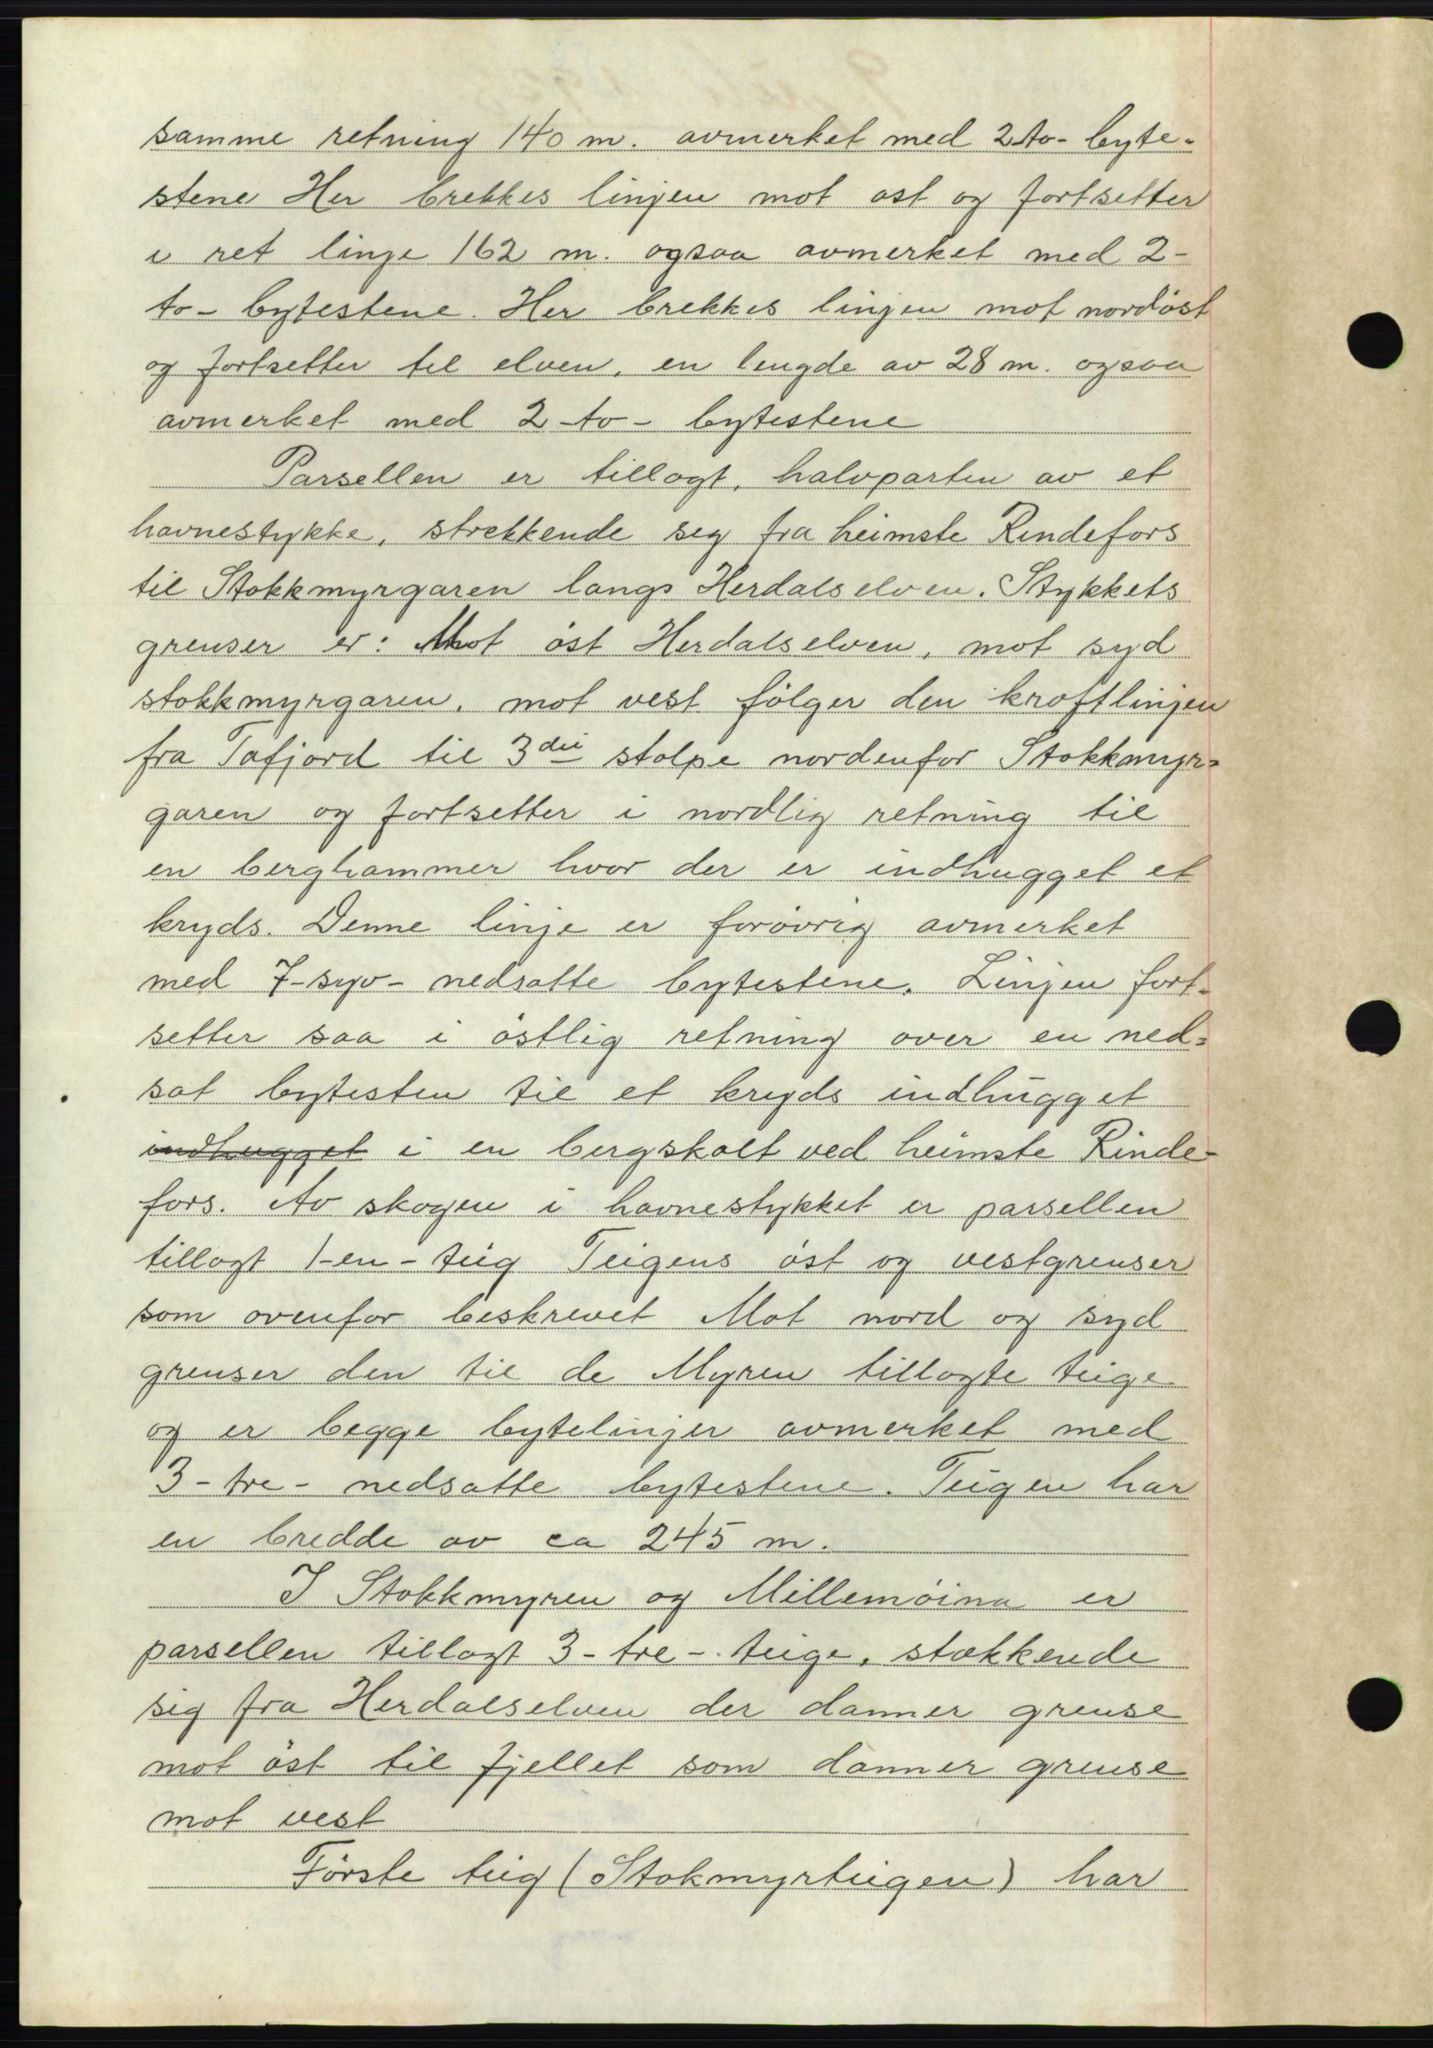 samme retning 140 m. avmerket med 2 to- byte-
stene Her brekkes linjen mot øst og fortsetter
i ret linge 162 m. ogsaa avmerket med 2-
to- bytestene. Her brekkes linjen mot nordöst
og fortsetter til elven, en lengde av 28 m. ogsaa
avmerket med 2-to- bytestene
Parsellen er tillagt, halvparten av et
havnestykke, strekkende seg fra heimste Rindefors
til Stokkmyrgaren langs Herdalselven. Stykkets
grenser er: Mot öst Herdalselven, mot syd
stokkmyrgaren, mot vest fölger den kraftlinjen
fra Tafjord til 3die stolpe nordenfor Stokkmyr=
garen og fortsetter i nordlig retning til
en berghammer hvor der er indhugget et
kryds. Denne linje er forövrig avmerket
med 7-syv- nedsatte bytestene. Linjen fort=
setter saa i östlig retning over en ned=
sat bytesten til et kryds indhugget
indhugget i en bergskalt ved heimste Rinde-
fors. Av skogen i havnestykket er parsellen
tillagt 1-en- teig Teigens öst og vestgrenser
som ovenfor beskrevet Mot nord og syd
grenser den til de Myren tillagte teige
og er begge bytelinjer avmerket med
3-tre- nedsatte bytestene. Teigen har
en bredde av ca 245 m.
I Stokkmyren og Millemöina er
parsellen tillagt 3-tre- teige, stækkende
sig fra Herdalselven der danner grense
mot öst til fjellet som danner grense
mot vest
Förste teig (Stokmyrteigen) har